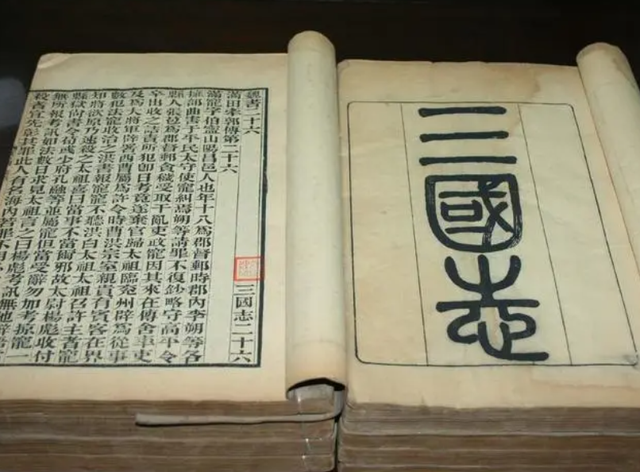 三國志
魏書二十六 三國志二十六
滿田牽郭傳第二十六
滿寵字伯寧山陽昌邑人也年十八為郡督郵時郡內李朔等各
擁部曲害于平民太守使寵糾焉朔等請罪不復鈔略守高平令
縣人張苞為郡督郵貪穢受取干亂吏政寵因其來在傳舍率吏
卒出收之詰責所犯即日考竟遂棄官歸太祖臨兗州辟為從事
及為大將軍辟署西曹屬為許令時曹洪宗室親貴有賓客在界
數犯法寵收治之洪書報寵寵不聽洪白太祖太祖召許主者寵
知將欲原乃速殺之太祖喜曰當事不當爾邪故太尉楊彪收付
縣獄尚書令荀彧少府孔融等並屬寵但當受辭勿加考掠寵一
無所報考訊如法數日求見太祖言之曰楊彪考訊無他辭語
殺者宜先彰其罪此人有名海內若罪不